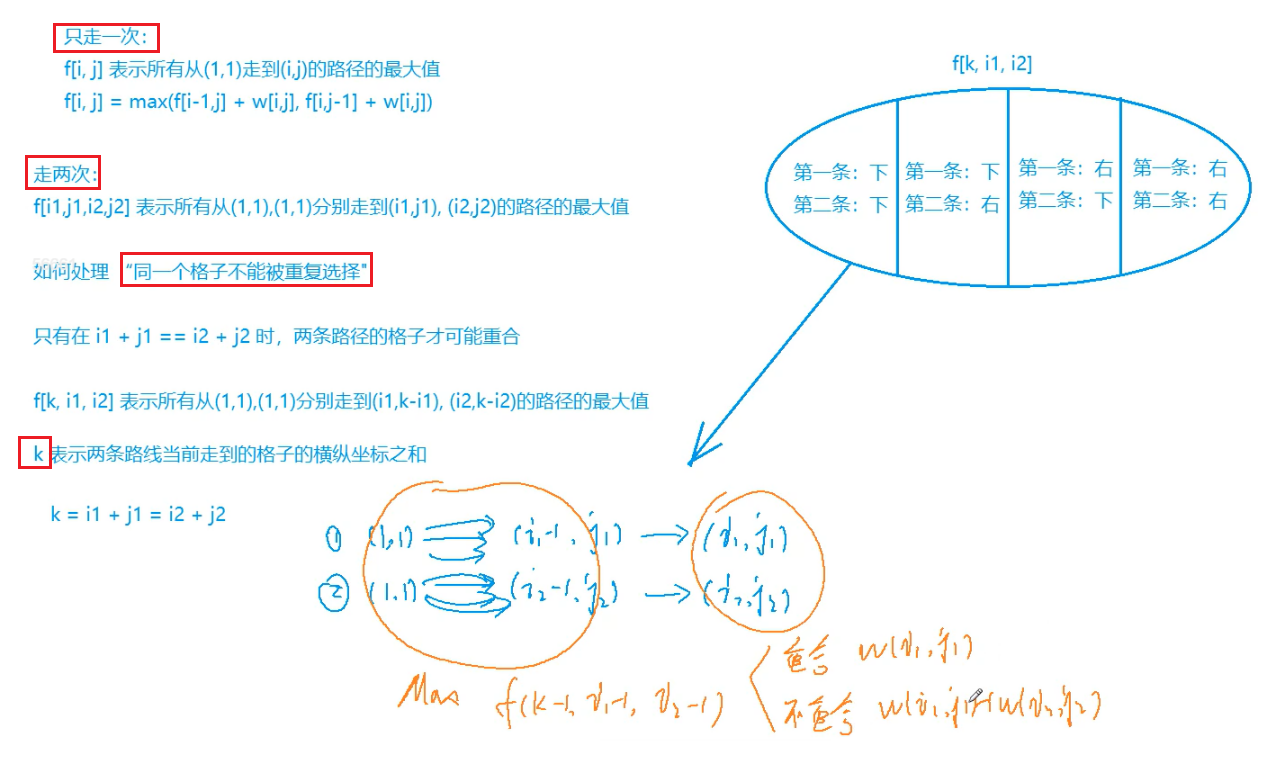 只走一次：
f[i, j] 表示所有从(1,1)走到(i,j)的路径的最大值
f[i, j] = max(f[i-1,j] + w[i,j], f[i,j-1] + w[i,j])
走两次：
f[i1,j1,i2,j2] 表示所有从(1,1),(1,1)分别走到(i1,j1), (i2,j2)的路径的最大值
如何处理 “同一个格子不能被重复选择"
只有在 i1 + j1 == i2 + j2 时，两条路径的格子才可能重合
f[k, i1, i2] 表示所有从(1,1),(1,1)分别走到(i1,k-i1), (i2,k-i2)的路径的最大值
k 表示两条路线当前走到的格子的横纵坐标之和
k = i1 + j1 = i2 + j2
f[k, i1, i2]
第一条：下
第二条：下
第一条：下
第二条：右
第一条：右
第二条：下
第一条：右
第二条：右
① (1,1) (i₁-1, j₁) → (i₁, j₁)
② (1,1) (i₂-1, j₂) → (i₂, j₂)
Max f(k-1, i₁-1, i₂-1)
重合 w(i₁, j₁)
不重合 w(i₁, j₁)+w(i₂, j₂)